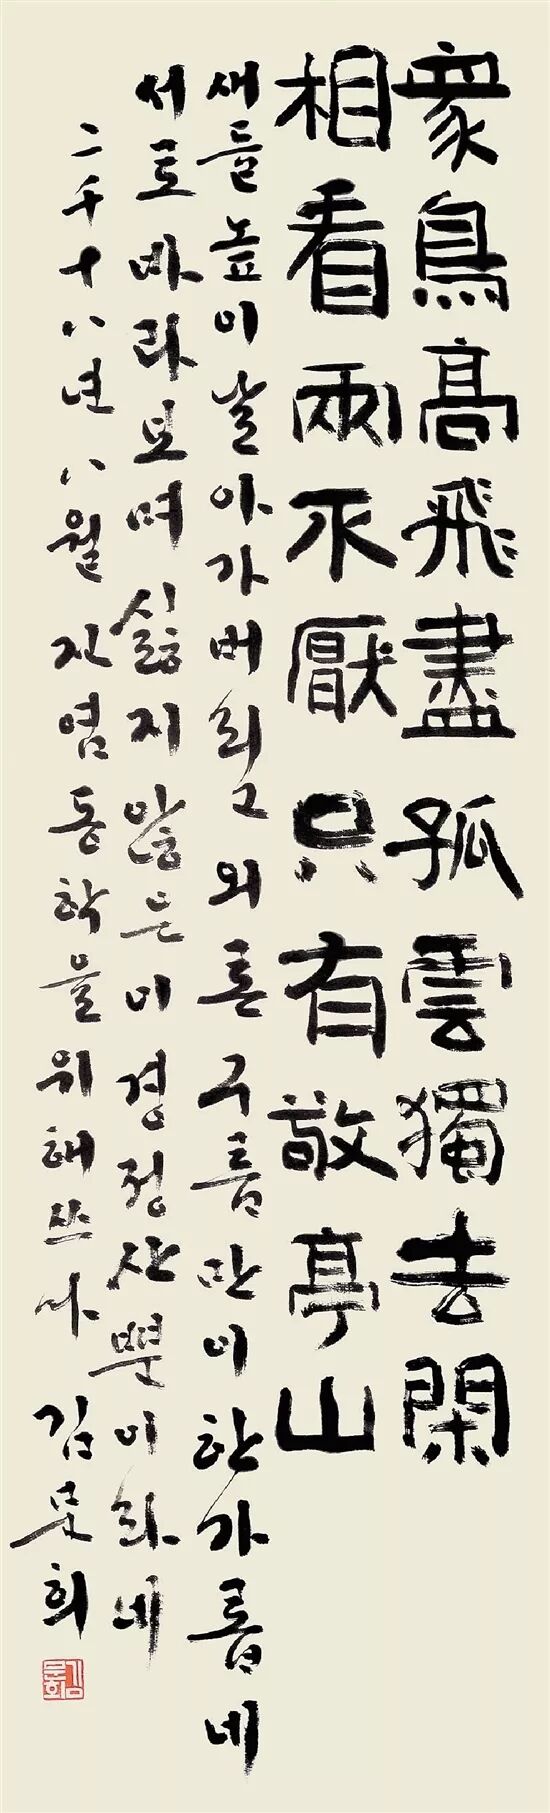 衆鳥高飛盡孤雲獨去閑
相看兩不厭只有敬亭山
새들높이날아가버리고외론구름만이한가롭네
서로바라보며싫지않은이경정산뿐이라네
二千十八년八월동학을위해쓰다 김문희